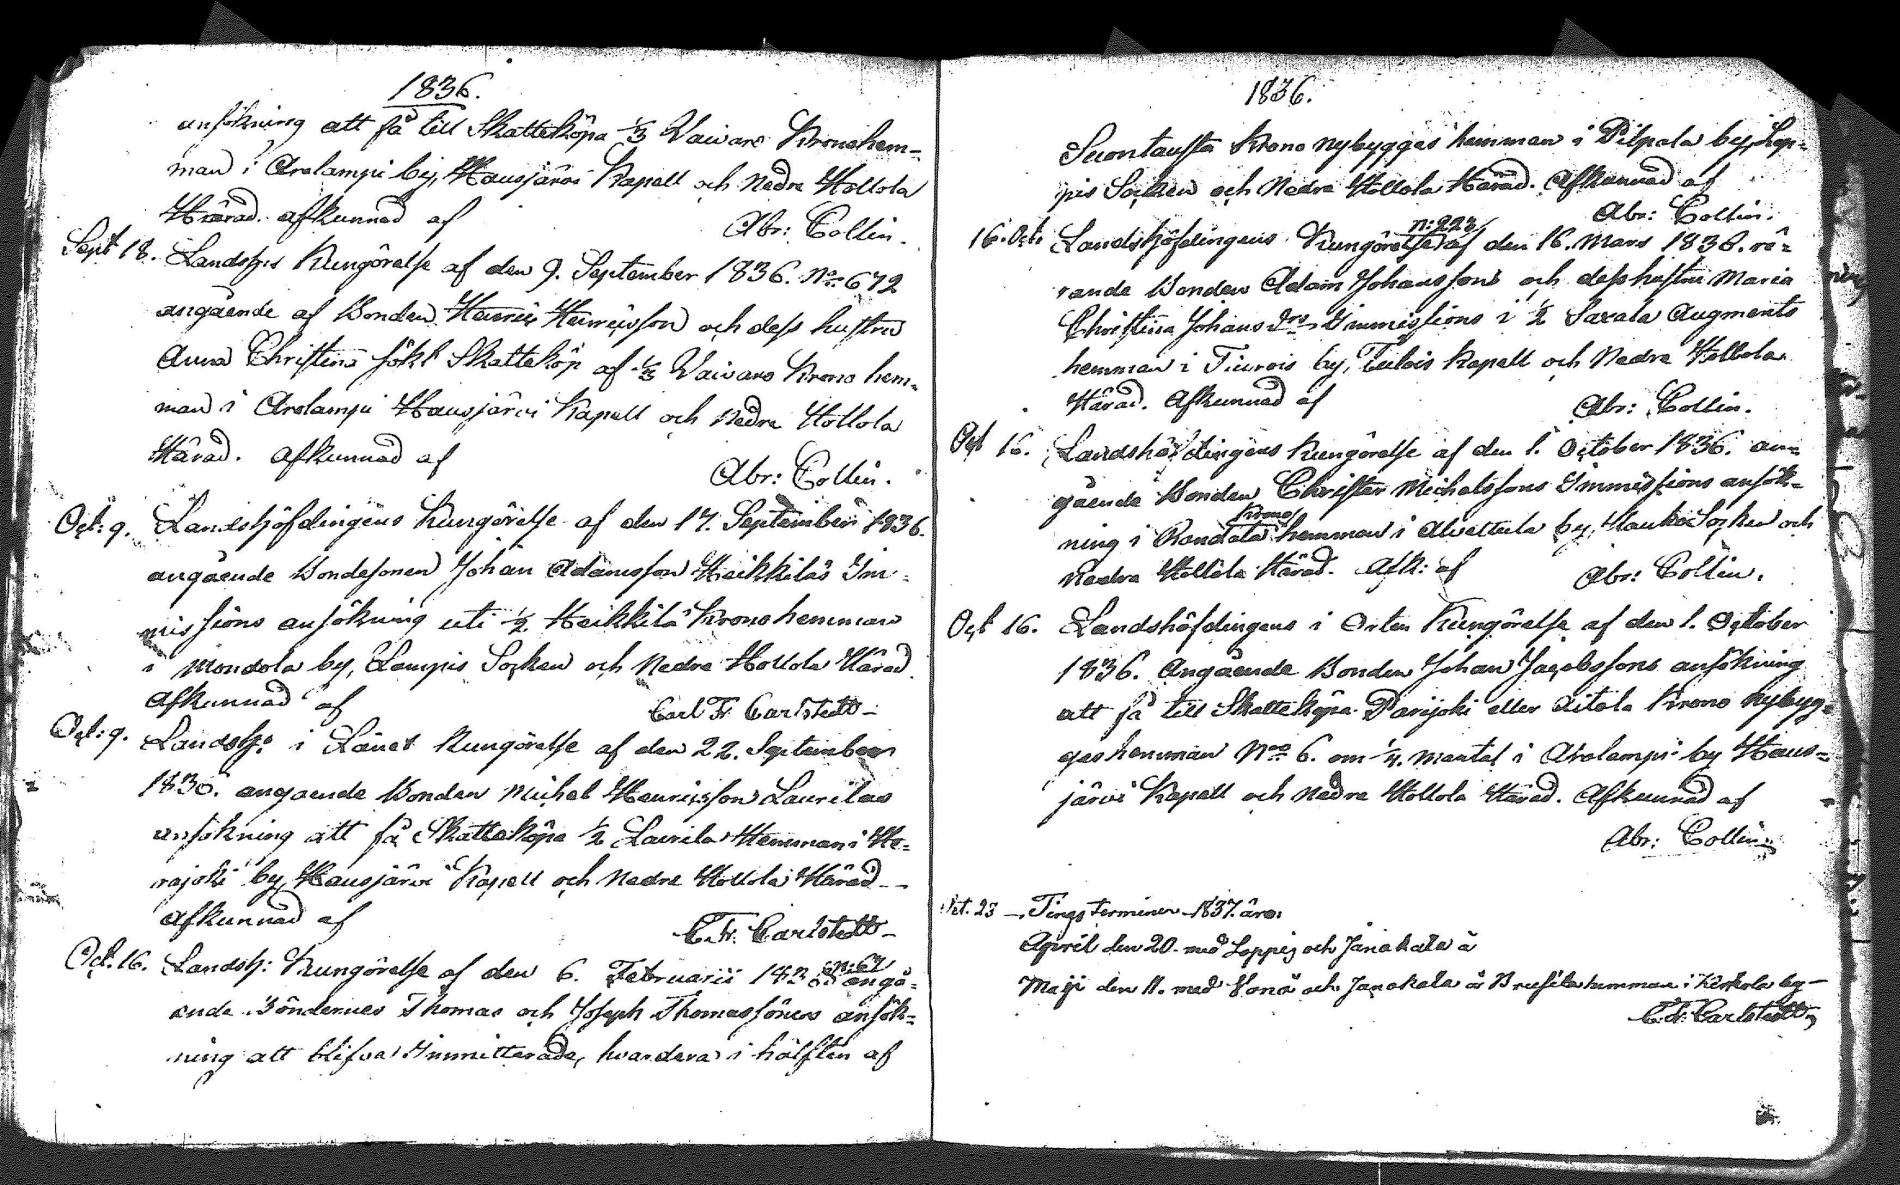 1836.
ansökning att få till Skatteköpa 1/3 Vaivars Kronohem-
man i Arolampi by, Hausjärvi Kapell och Nedre Hollola
Härad. afkunnad af Abr: Collin.
Sept 18. Landshs Kungörelse af den 9. September 1836. No 672
angående af Bonden Henric Henricsson och dess hustru
Anna Christina sökt Skatteköp af 1/3 Vaivars Krono hem-
man i Arolampi Hausjärvi Kapell och Nedre Hollola
Härad. afkunnad af Abr: Collin.
Oct: 9. Landshöfdingens Kungörelse af den 17. September 1836.
angående Bondesonen Johan Adamsson Heikkiläs Im-
missions ansökning uti 1/2 Heikkilä Kronohemman
i Mondola by, Lampis Socken och Nedre Hollola Härad.
Afkunnad af Carl Fr Carlstedt
Oct: 9. Landsh: i Länet Kungörelse af den 22. September
1836. angaende Bonden Michel Henricsson Laurilas
ansökning att få Skatteköpa 1/2 Laurila Hemman i He-
rajoki by, Hausjärvi Kapell och Nedre Hollola Härad
Afkunnad af C. Fr. Carlstedt
Oct. 16. Landsh: Kungörelse af den 6. Februarii angå-
ende Bönderne Thomas och Joseph Thomassöners ansök-
ning att blifva Immitterade, hvardera i hälften af
1836.
Suontausta Krono nybygges hemman i Pilpala by, Lop-
pis Socken och Nedre Hollola Härad. Afkunnad af
Abr: Collin.
16. Oct. Landshöfdingens Kungörelse n: 223 af den 16. Mars 1836. rö-
rande Bonden Adam Johanssons och dess hustru Maria
Christina Johans Drs Immissions i 1/2 Saxala Augments
hemman i Tiurois by, Tulois Kapell och Nedre Hollola
Härad. Afkunnad af Abr: Collin.
Oct 16. Landshöfdingens Kungörelse af den 1. October 1836. an-
gående Bonden Christer Michelssons Immissions ansök-
ning i Randala Krono hemman i Alvettula by, Hauho Socken och
Nedre Hollola Härad. Afk: af Abr: Collin.
Oct 16. Landshöfdingens i Orten Kungörelse af den 1. October
1836. Angående Bonden Johan Jacobssons ansökning
att få till Skatteköpa Parijoki eller Aitola Krono Nybyg-
ges hemman No 6. om 1/4. mantal i Arolampi by Haus-
järvi Kapell och Nedre Hollola Härad. Afkunnad af
Abr: Collin
Oct. 23 Tings terminer 1837. äro:
April den 20. med Loppis och Janakala å
Maji den 11. med Vånå och Janakala å hemman i Kerkola by
C. Fr. Carlstedt